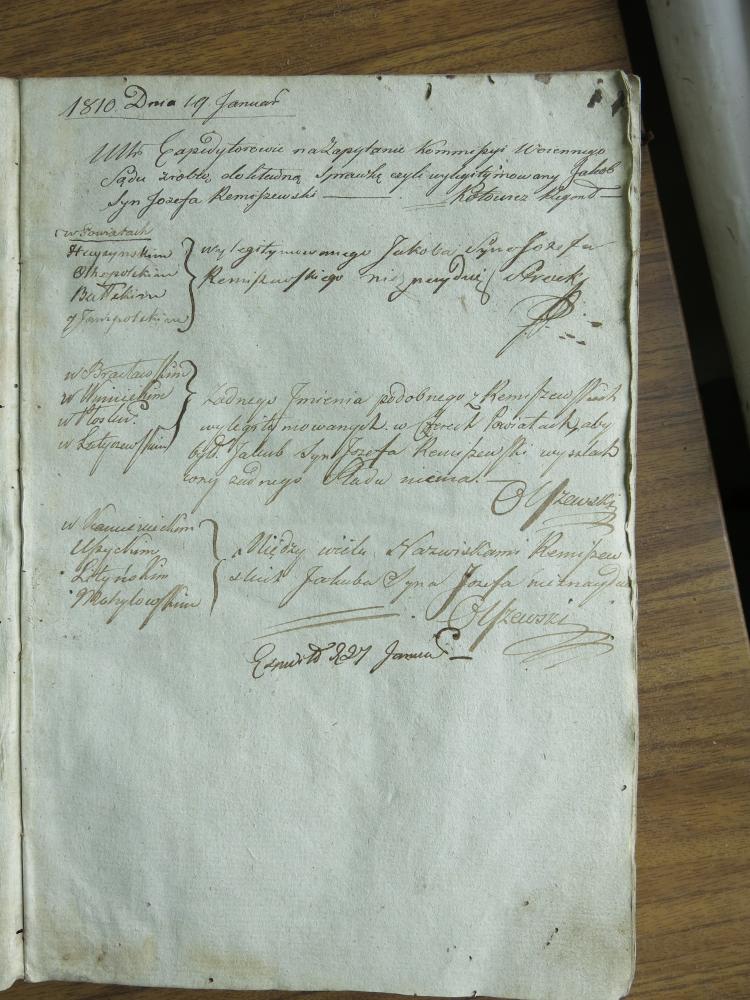 1810. Dnia 19 Januar
Expedytorowie na Zapytanie Kommissyi Woiennego
Sądu zrobią dokładną Sprawkę czyli wylegitymowany Jakob
Syn Jozefa Remiszewski —
w Powiatach
Haysynskim
Olhopolskim
Baltskim
y Jampolskim
wylegitymowanego Jakoba Syna Jozefa
Remiszewskiego nie
w Bracławskim
w Winnickim
w Płoskir.
w Latyczewskim
żadnego Imienia podobnego z Remiszewskich
wylegitymowanych w Czterech Powiatach, aby
był Jakub Syn Jozefa Remiszewski
żadnego Sladu niema.
Olszewski
w Kamienieckim
Uszyckim
Latyńskim
Mohylowskim
Między wielu Nazwiskami Remiszew
skich Jakuba Syna Jozefa nieznayduie
Olszewski
27 Januar